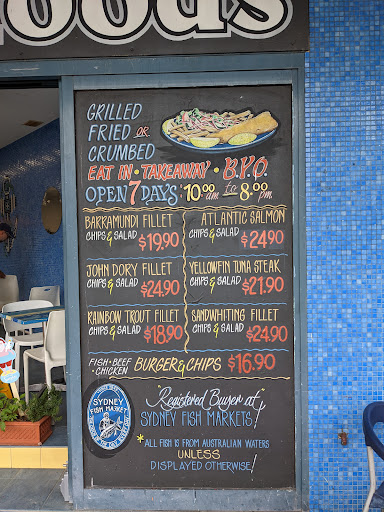 oods
GRILLED
FRIED OR
CRUMBED
EAT IN • TAKEAWAY • B.Y.O.
OPEN 7 DAYS 10:00 am to 8:00 pm
BARRAMUNDI FILLET
CHIPS & SALAD $19.90
ATLANTIC SALMON
CHIPS & SALAD $24.90
JOHN DORY FILLET
CHIPS & SALAD $24.90
YELLOWFIN TUNA STEAK
CHIPS & SALAD $21.90
RAINBOW TROUT FILLET
CHIPS & SALAD $18.90
SANDWHITING FILLET
CHIPS & SALAD $24.90
FISH • BEEF
• CHICKEN BURGER & CHIPS $16.90
SYDNEY
FISH MARKET
"Registered Buyer at
SYDNEY FISH MARKETS!"
*ALL FISH IS FROM AUSTRALIAN WATERS
UNLESS
DISPLAYED OTHERWISE!